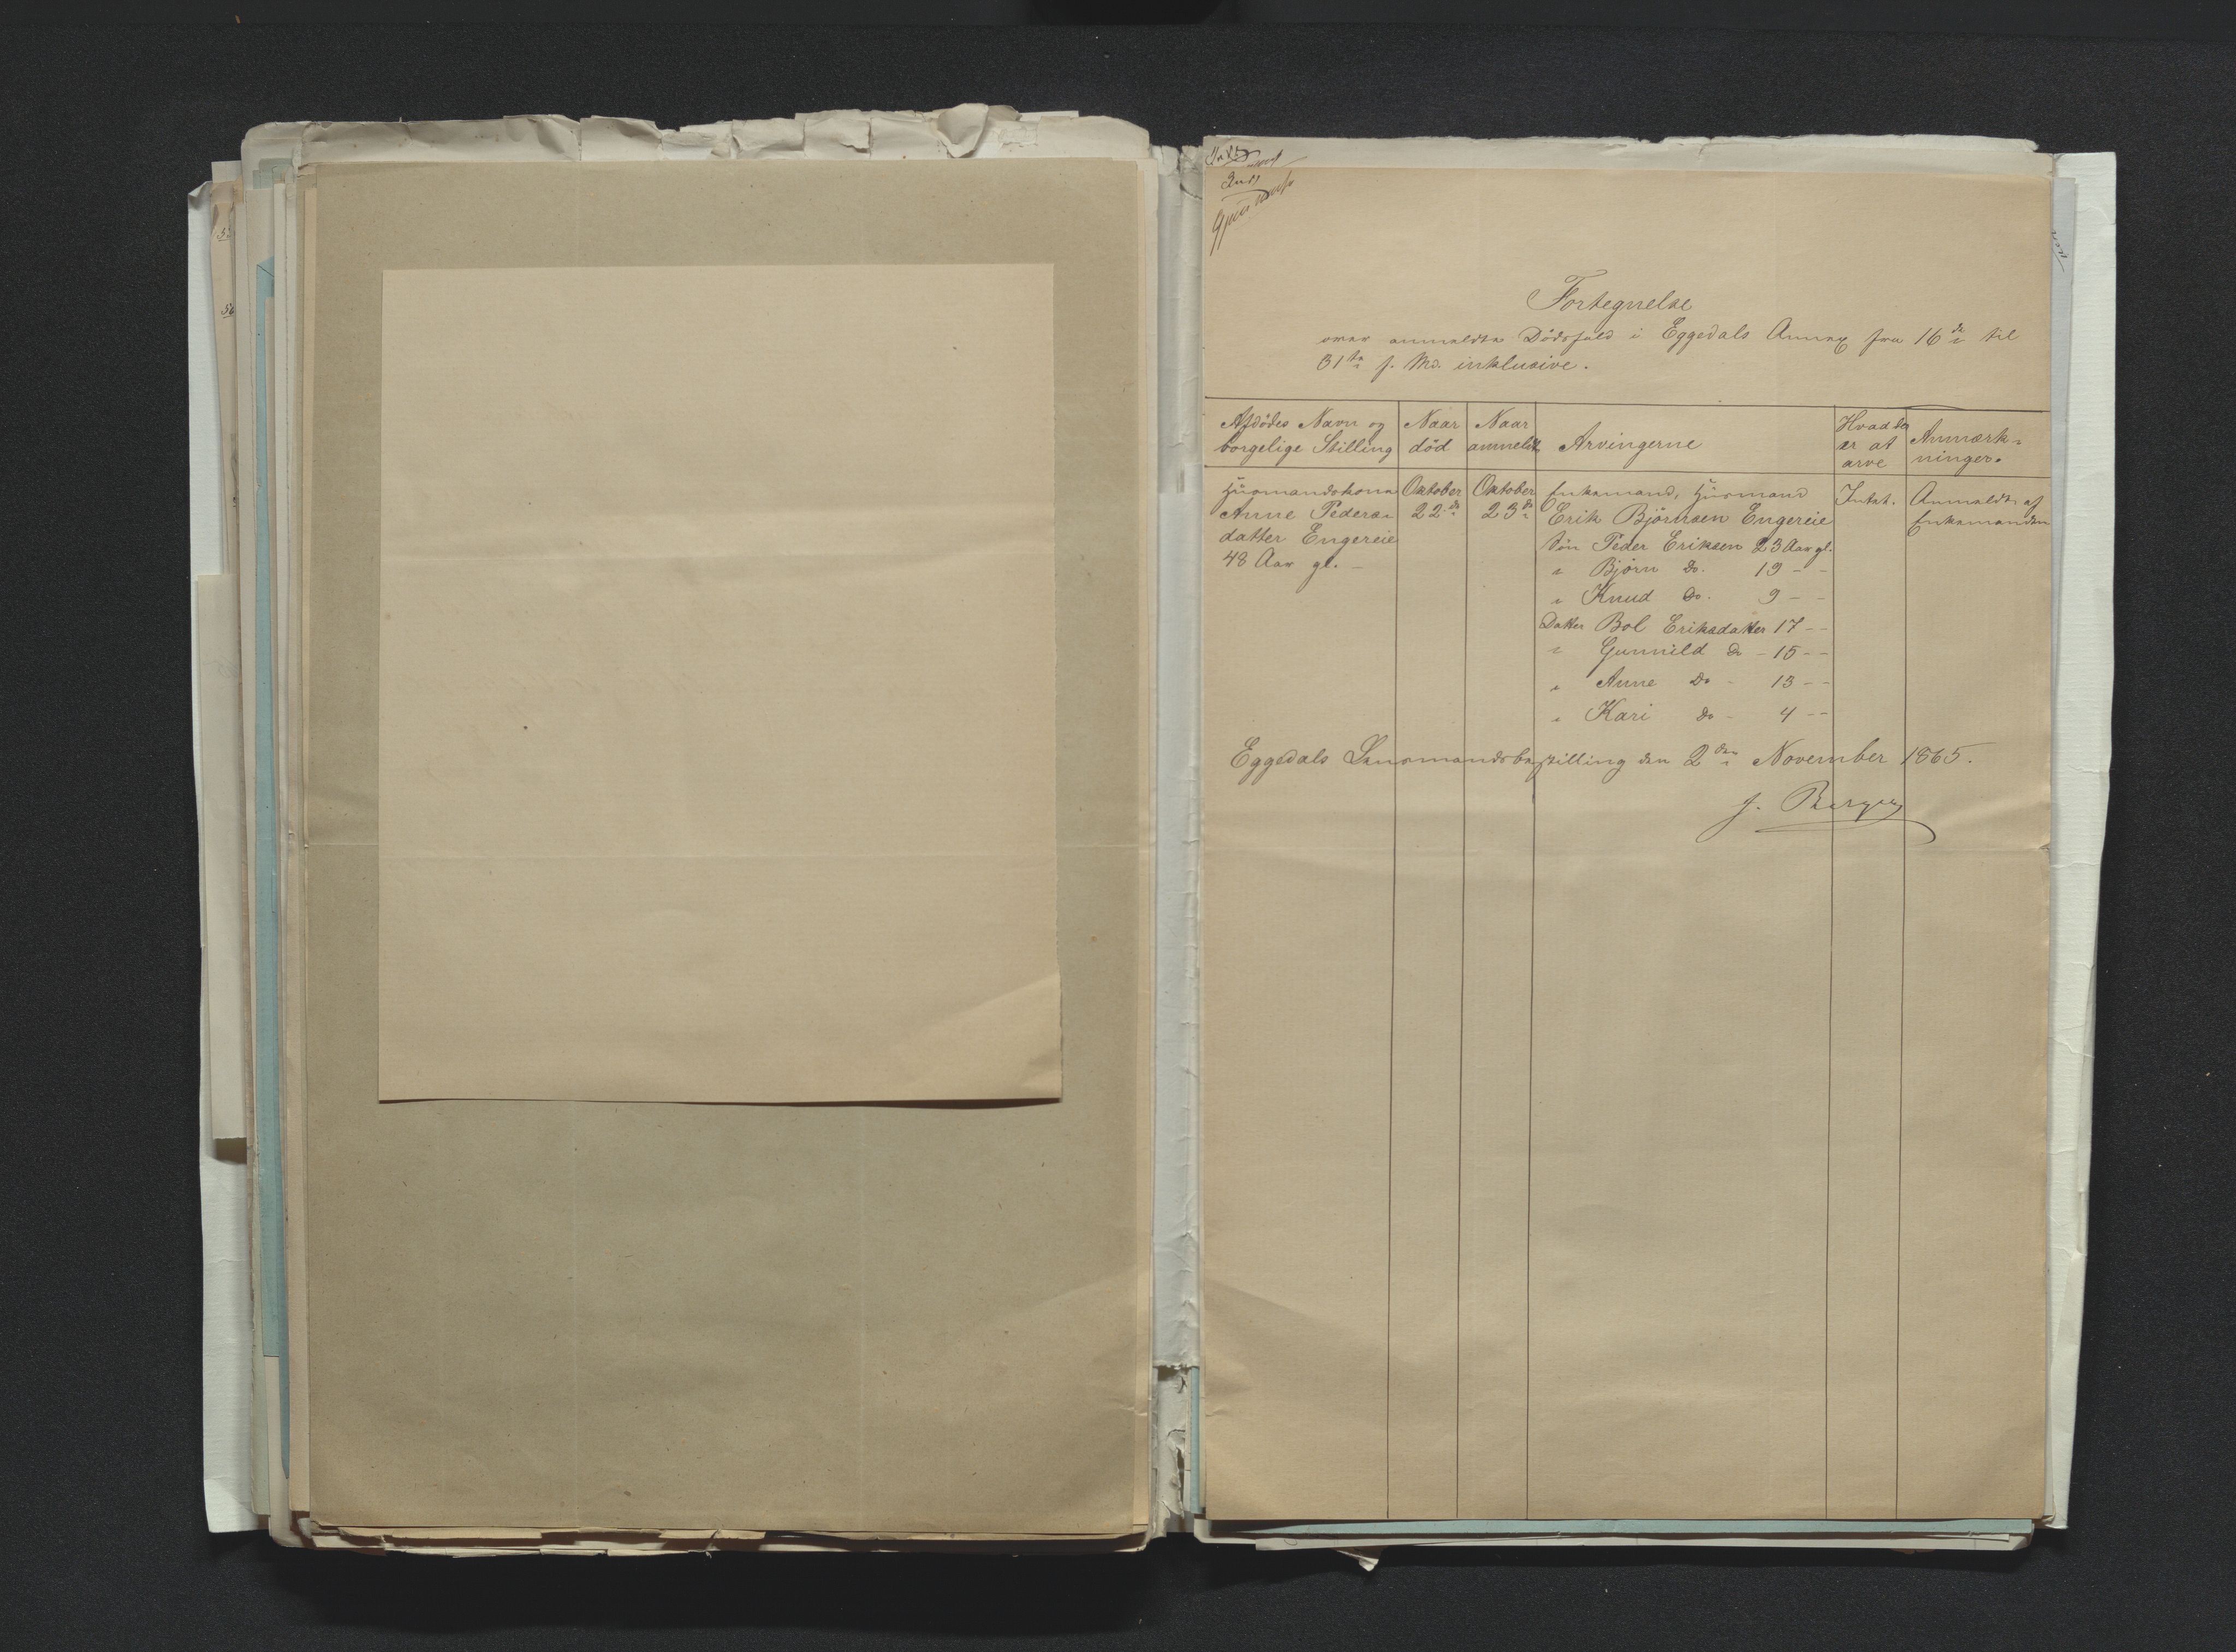 Fortegnelse
over anmeldte Dödsfald i Eggedals Annex fra 16de til
31te f. Md. inklusive.
Afdödes Navn og borgelige Stilling
Naar död
Naar anmeldt
Arvingerne
Hvad der er at arve
Anmærkninger.
Huusmandskone
Anne Peders-
datter Engereie
48 Aar gl. -
Oktober
22de
Oktober
23de
Enkemand, Huusmand
Erik Björnsen Engereie
Sön Peder Eriksen 23 Aar gl.
" Björn Do. 19 - -
" Knud Do. 9 - -
Datter Bol Eriksdatter 17 - -
" Gunnild Do - 15 - -
" Anne Do - 13 - -
" Kari Do - 4 - -
Intet.
Anmeldt af
Enkemanden
Eggedals Lensmandsbestilling den 2den November 1865.